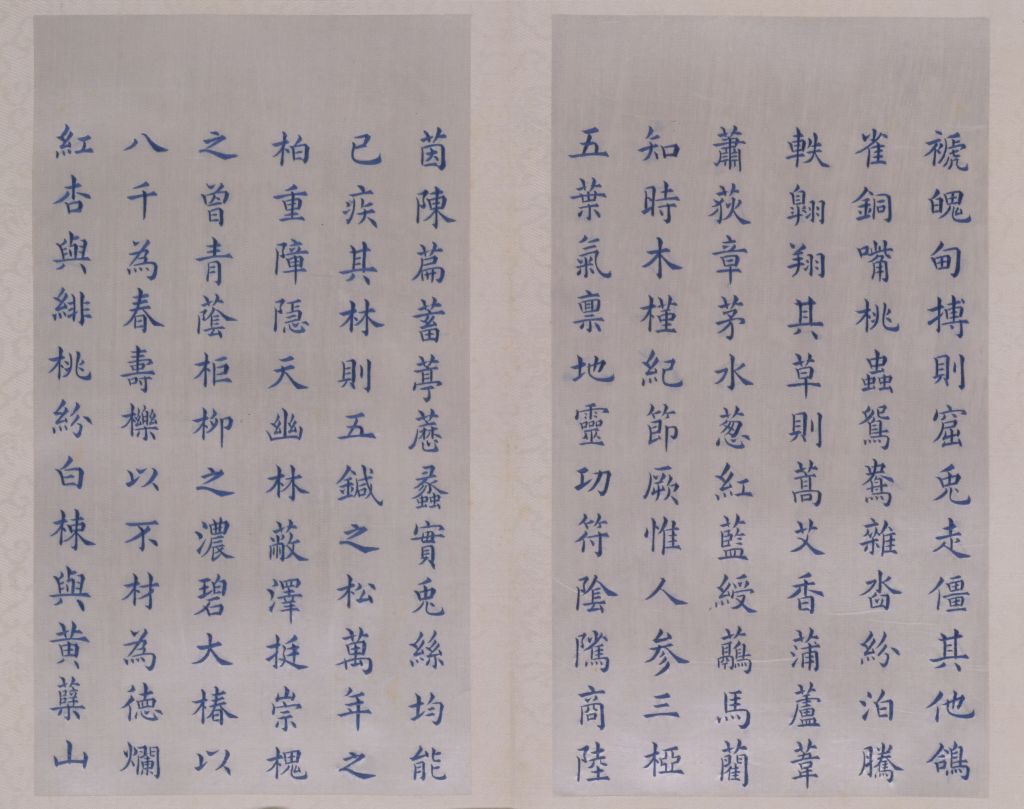 褫魄甸搏則窟兔走僵其他鴿
雀銅嘴桃蟲鴛鴦雜沓紛泊騰
軼翺翔其草則蒿艾香蒲蘆葦
蕭荻章茅水葱紅藍綬虉馬藺
知時木槿紀節厥惟人参三椏
五葉氣禀地靈功符陰隲商陸
茵陳萹蓄葶藶蠡實兔絲均能
已疾其林則五鍼之松萬年之
柏重障隱天幽林蔽澤挺崇槐
之曾青蔭柜柳之濃碧大椿以
八千為春壽櫟以不材為德爛
紅杏與緋桃紛白楝與黄蘗山